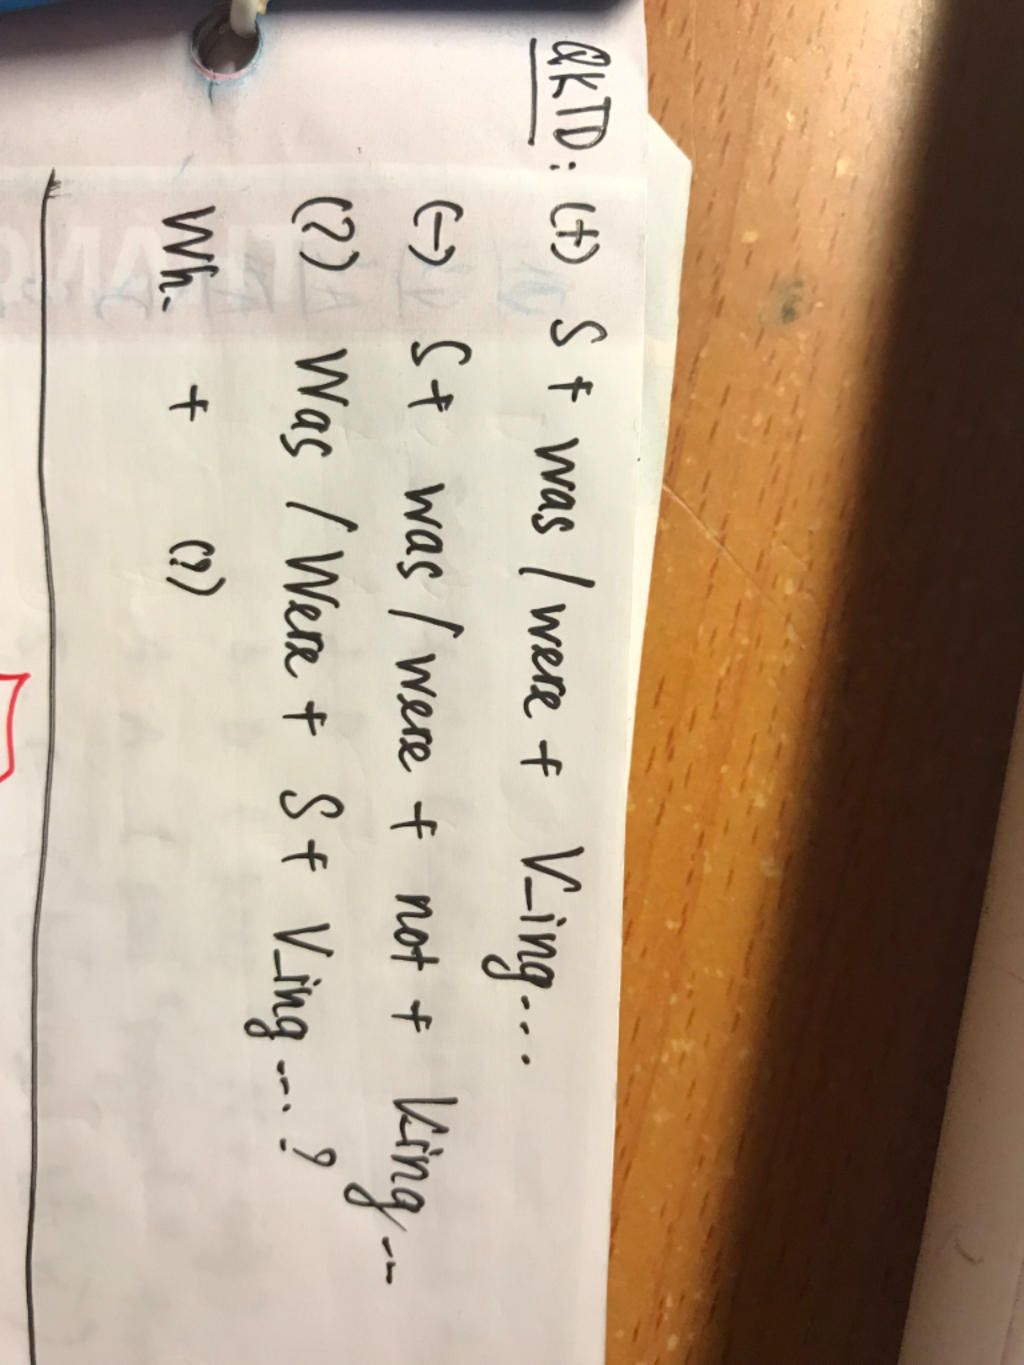 QKTD: (+) S + was / were + V_ing...
(-) S + was / were + not + V_ing...
(?) Was / Were + S + V_ing...?
Wh- + (?)